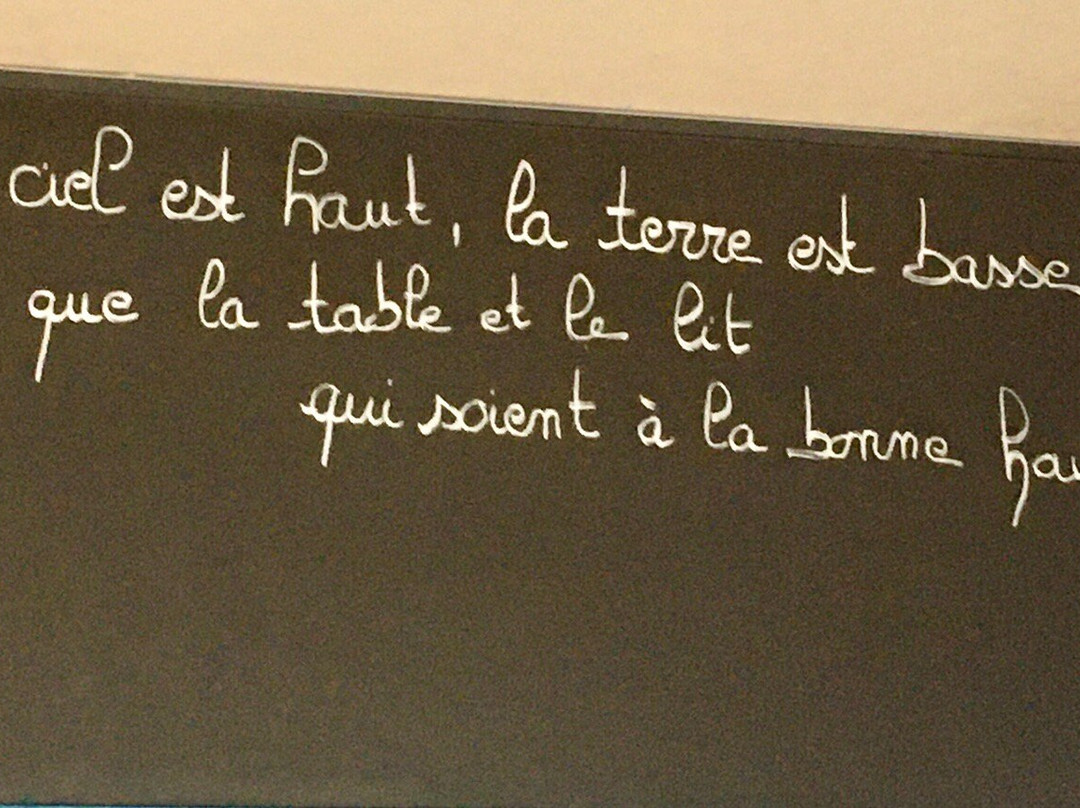 ciel est haut, la terre est basse
que la table et le lit
qui soient à la bonne hau